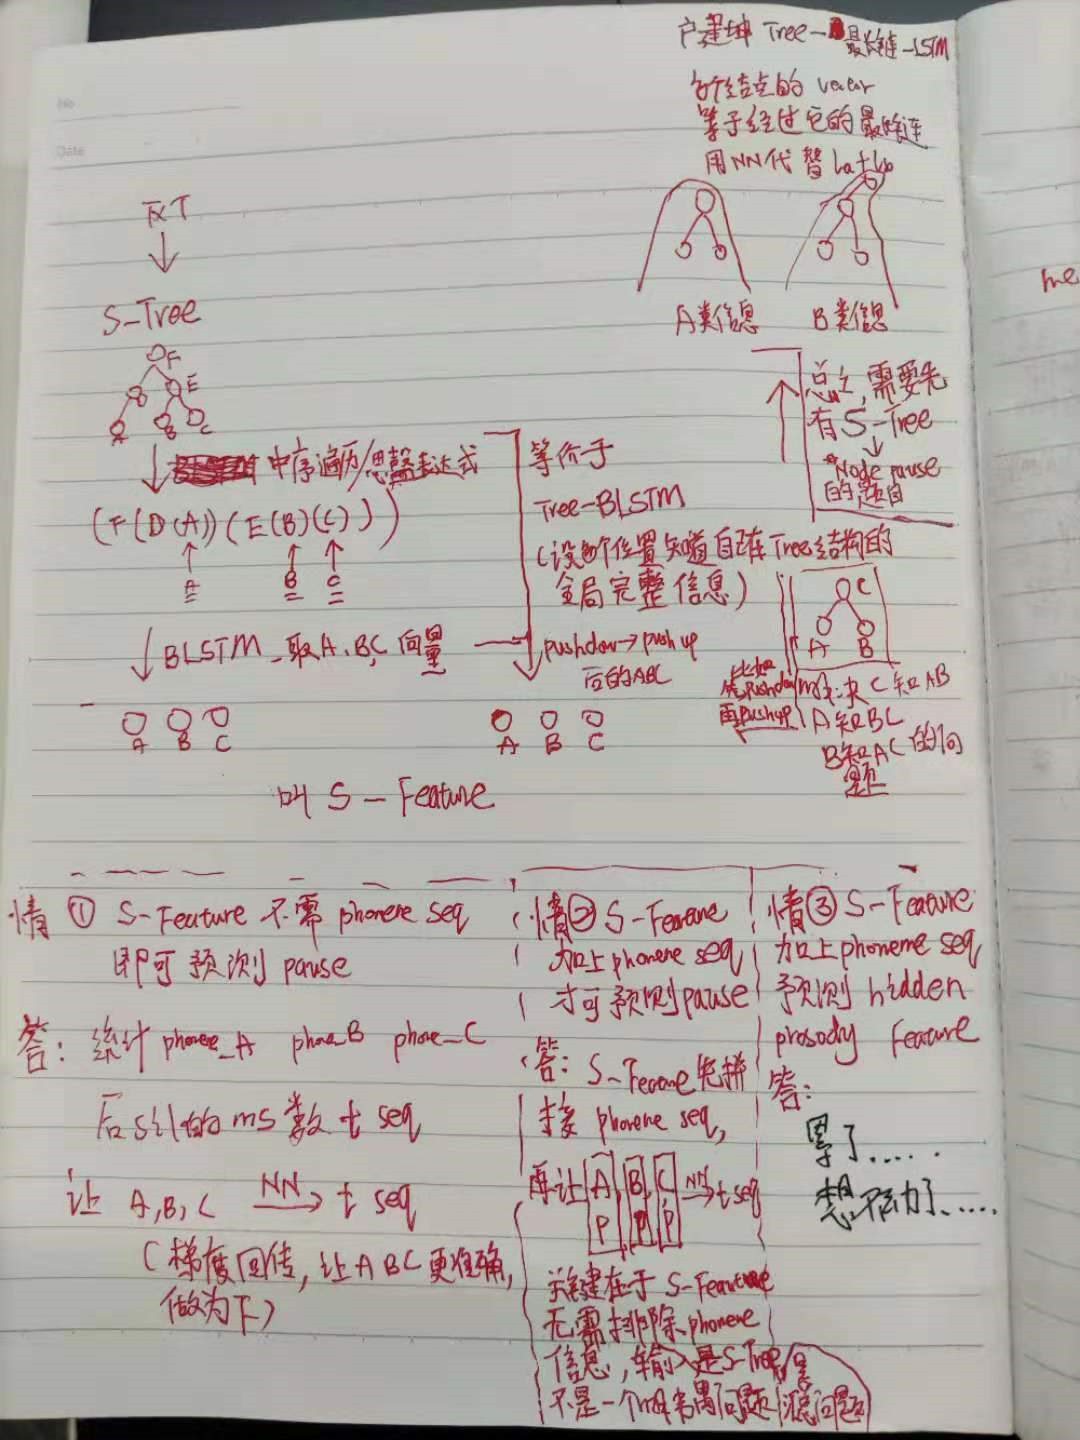 No
Date
卢建坤 Tree-最长链-LSTM
每个结点的 vector
等于经过它的最长链
用NN代替
A类信息 B类信息
me
S-Tree
F
E
A B C
中序遍历/思馨表达式
(F(D(A))(E(B)(C)))
A B C
BLSTM 取A,B,C 向量
A B C
等价于
Tree-BLSTM
(设每个位置知道自己在Tree结构的
全局完整信息)
pushdow→push up
后的ABC
A B C
叫 S-Feature
总之,需要先
有S-Tree
Node pause
的题目
C
A B
比如
先pushdow
再pushup
解决 C知AB
A知BC
B知AC的问
题
情① S-Feature 不需 phoneme seq
即可预测 pause
答: 统计 phoneme_A phone_B phone_C
后sil的ms数 t seq
让 A,B,C NN→ t seq
(梯度回传,让ABC更准确,
做为下)
情② S-Feature
加上phoneme seq
才可预测pause
答: S-Feature先拼
接 phoneme seq,
再让 A B C NN→ t seq
P P P
关键在于 S-Feature
无需排除phoneme
信息,输入是S-Tree,
不是一个 问题
问题
情③ S-Feature
加上phoneme seq
预测 hidden
prosody Feature
答:
累了......
想不动了.....